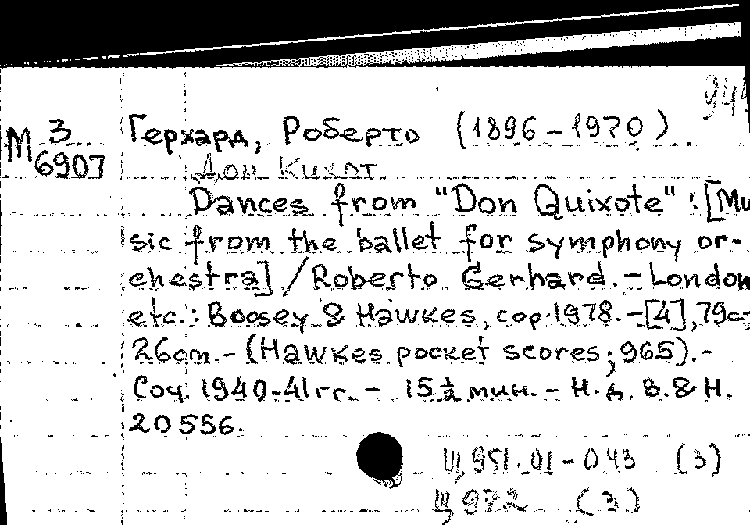 94
М 3 Герхард, Роберто (1896-1970)
6907 Дон Кихот
Dances from "Don Quixote" : [Mu
sic from the ballet for symphony or-
chestra] / Roberto Gerhard. - London
etc. : Boosey & Hawkes, cop. 1978. - [4], 79 с;
26 cm. - (Hawkes pocket scores; 965). -
Соч. 1940-41 гг. - 15 ½ мин. - Н. д. B. & H.
20556.
Щ 951.01-043 (3)
Щ 972 (3)